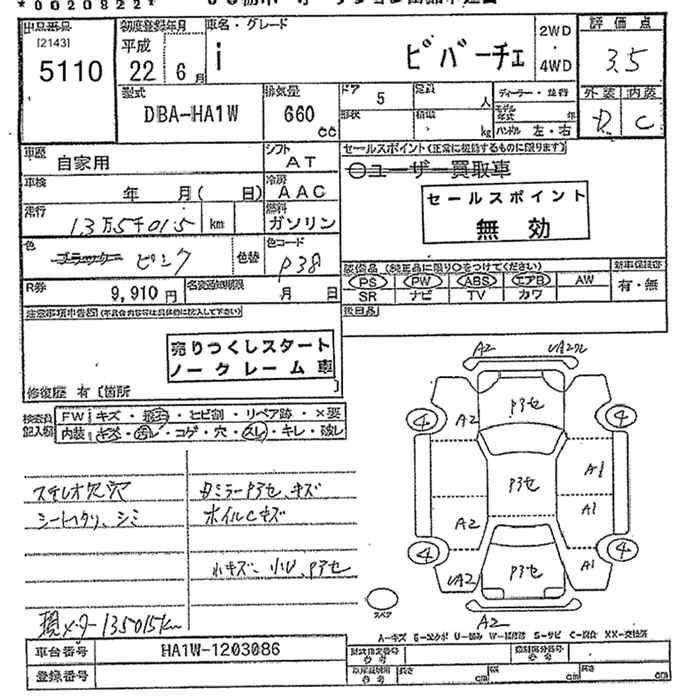 *0020822*
出品番号 [2143] 5110
初度登録年月 平成 22年 6月
車名・グレード i ビバーチェ
2WD・4WD
評価点 3.5
型式 DBA-HA1W
排気量 660cc
ドア 5
形状
定員 人
積載 kg
ディーラー・並行
モデル年式 年
ハンドル 左・右
外装 内装
D C
車歴 自家用
シフト AT
セールスポイント(正常に機能するものに限ります)
○ユーザー買取車
セールスポイント
無効
車検 年 月(日)
冷房 AAC
走行 13万5千015 km
燃料 ガソリン
色 ブラック ピンク 色替
色コード P38
R券 9,910円
名変通知期限 月 日
装備品(純正品に限り○をつけてください)
PS PW ABS エアB AW
SR ナビ TV カワ
新車保証書 有・無
後日品
注意事項申告書
売りつくしスタート
ノークレーム車
修復歴 有[箇所
検査員記入欄
FW キズ・飛石・ヒビ割・リペア跡・×要
内装 キズ・汚レ・コゲ・穴・スレ・キレ・破レ
ステレオ欠穴
シートヘタリ、シミ
現メーター135015km
ミラーPアセ、キズ
ホイルCキズ
小キズ、小U、Pアセ
A2 UA2ワレ
Pアセ
4 A2 4
Pアセ A1
A2 A1
4 4
UA2 Pアセ A1
A2
スペア
A-キズ E-エクボ U-凹み W-補修跡 S-サビ C-腐食 XX-交換済
車台番号 HA1W-1203086
登録番号
型式指定番号 参考
類別区分番号 参考
長さ cm 幅 cm 高さ cm